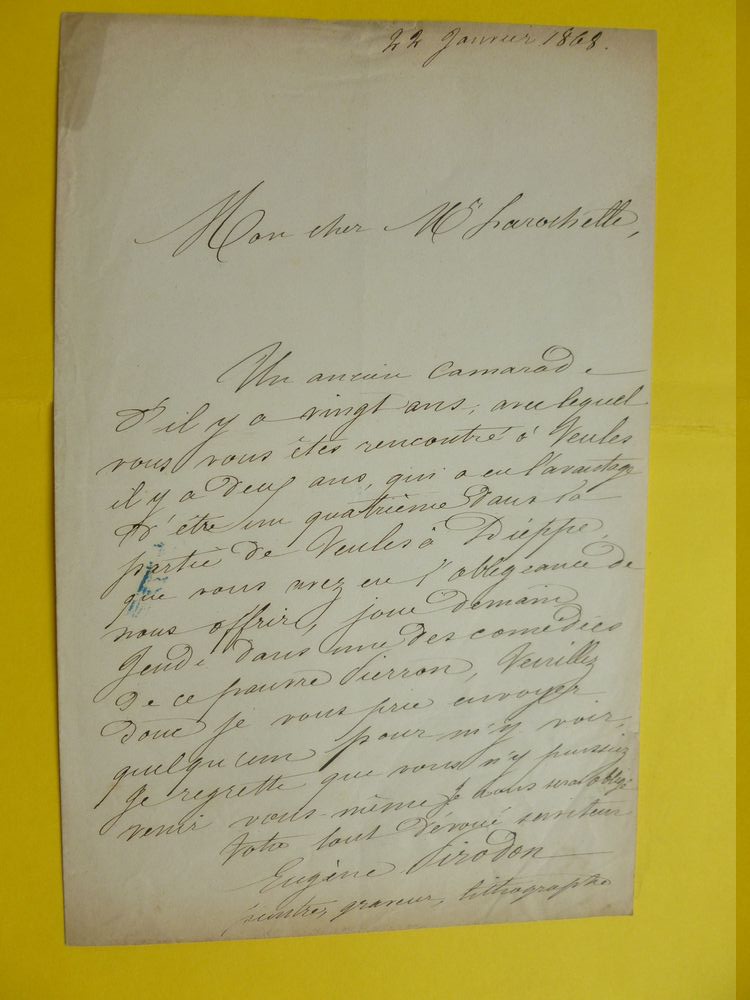 22 Janvier 1868.
Mon cher Mr Larochelle,
Un ancien Camarade
D'il y a vingt ans, avec lequel
vous vous êtes rencontré à Veules
il y a Deux ans, qui a eu l'avantage
D'être un quatrième Dans la
partie de Veules à Dieppe,
que vous avez eu l'obligeance De
nous offrir, joue Demain
Jeudi Dans une Des comédies
De ce pauvre Pierron, Veuillez
Donc je vous prie envoyer
quelqu'un pour m'y voir,
Je regrette que vous n'y puissiez
venir vous-même Je vous serai obligé
Votre tout Dévoué serviteur
Eugène Pirodon
peintre, graveur, lithographe